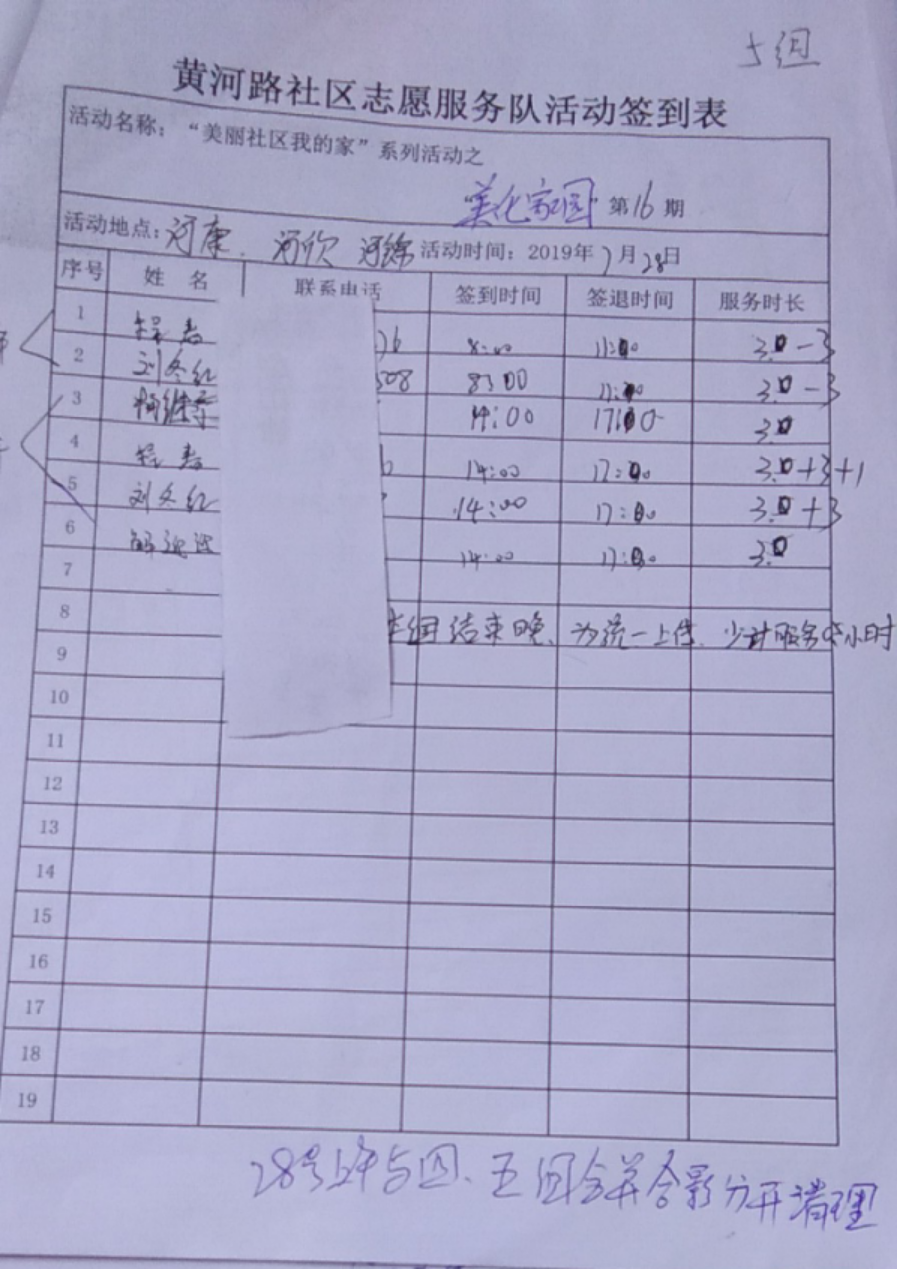 5组
黄河路社区志愿服务队活动签到表
活动名称：“美丽社区我的家”系列活动之
“美化家园”第16期
活动地点：河康、河欣 河锦 活动时间：2019年7月28日
序号 姓名 联系电话 签到时间 签退时间 服务时长
1 8:00 11:00 3.0-3
2 刘冬红 508 8:00 11:00 3.0-3
3 14:00 17:00 3.0
4 14:00 17:00 3.0+3+1
5 刘冬红 14:00 17:00 3.0+3
6 14:00 17:00 3.0
7
8 本组结束晚、为统一上传、少计服务 小时
9
10
11
12
13
14
15
16
17
18
19
28号上午与四、五组合并合影分开清理